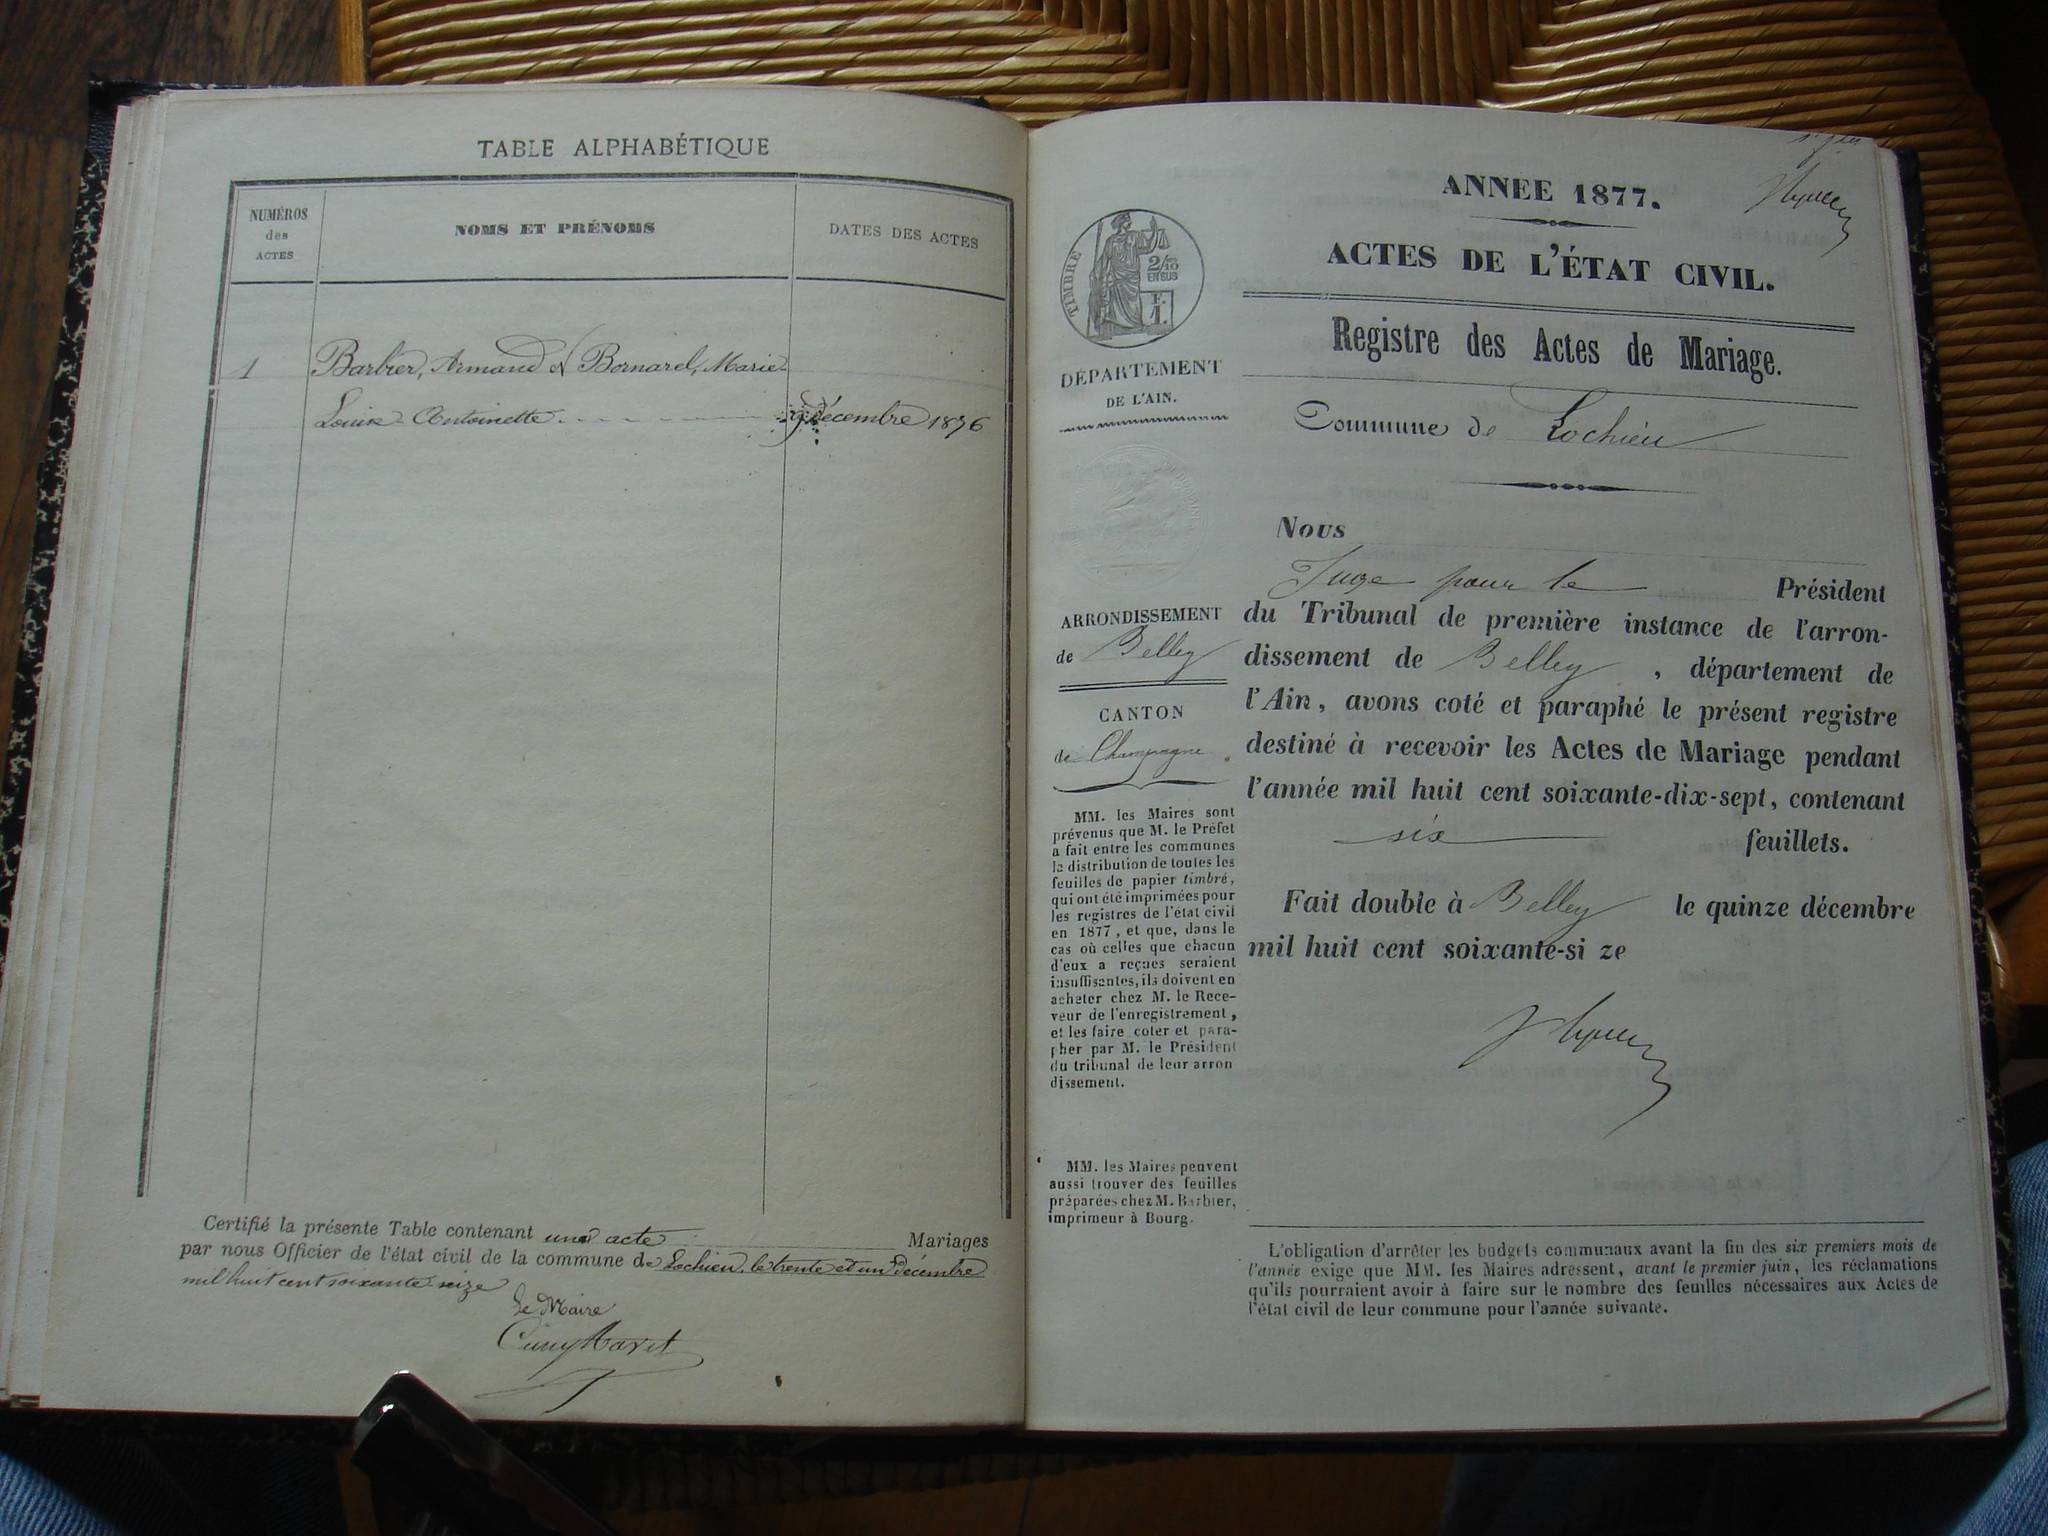 TABLE ALPHABÉTIQUE
NUMÉROS
des
ACTES
NOMS ET PRÉNOMS
DATES DES ACTES
1 Barbier, Armand et Bornarel, Marie
Louise Antoinette. 9 décembre 1876
Certifié la présente Table contenant un acte Mariages
par nous Officier de l'état civil de la commune de Lochieu, le trente et un Décembre
mil huit cent soixante seize
Le Maire
ANNEE 1877.
ACTES DE L'ÉTAT CIVIL.
Registre des Actes de Mariage.
Commune de Lochieu
TIMBRE
2/10
EN SUS
F.
1.
DÉPARTEMENT
DE L'AIN.
ARRONDISSEMENT
de Belley
CANTON
de Champagne
MM. les Maires sont
prévenus que M. le Préfet
a fait entre les communes
la distribution de toutes les
feuilles de papier timbré,
qui ont été imprimées pour
les registres de l'état civil
en 1877, et que, dans le
cas où celles que chacun
d'eux a reçues seraient
insuffisantes, ils doivent en
acheter chez M. le Rece-
veur de l'enregistrement,
et les faire coter et para-
pher par M. le Président
du tribunal de leur arron
dissement.
MM. les Maires peuvent
aussi trouver des feuilles
préparées chez M. Barbier,
imprimeur à Bourg.
Nous
Juge pour le Président
du Tribunal de première instance de l'arron-
dissement de Belley, département de
l'Ain, avons coté et paraphé le présent registre
destiné à recevoir les Actes de Mariage pendant
l'année mil huit cent soixante-dix-sept, contenant
six feuillets.
Fait double à Belley le quinze décembre
mil huit cent soixante-si ze
L'obligation d'arrêter les budgets communaux avant la fin des six premiers mois de
l'année exige que MM. les Maires adressent, avant le premier juin, les réclamations
qu'ils pourraient avoir à faire sur le nombre des feuilles nécessaires aux Actes de
l'état civil de leur commune pour l'année suivante.